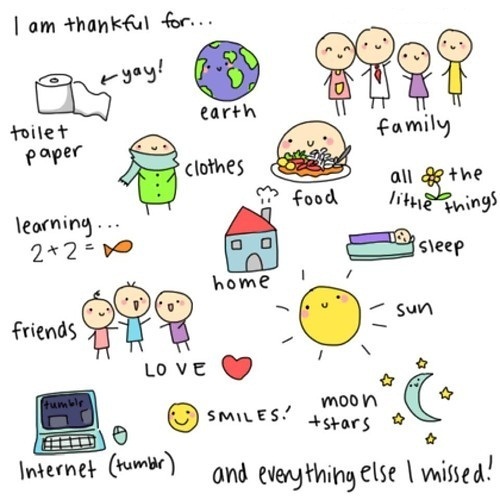 I am thankful for...
yay!
toilet
paper
earth
family
clothes
food
all the
little things
learning...
2+2=
home
sleep
friends
sun
LOVE
tumblr
SMILES!
moon
+stars
Internet (tumblr)
and everything else I missed!